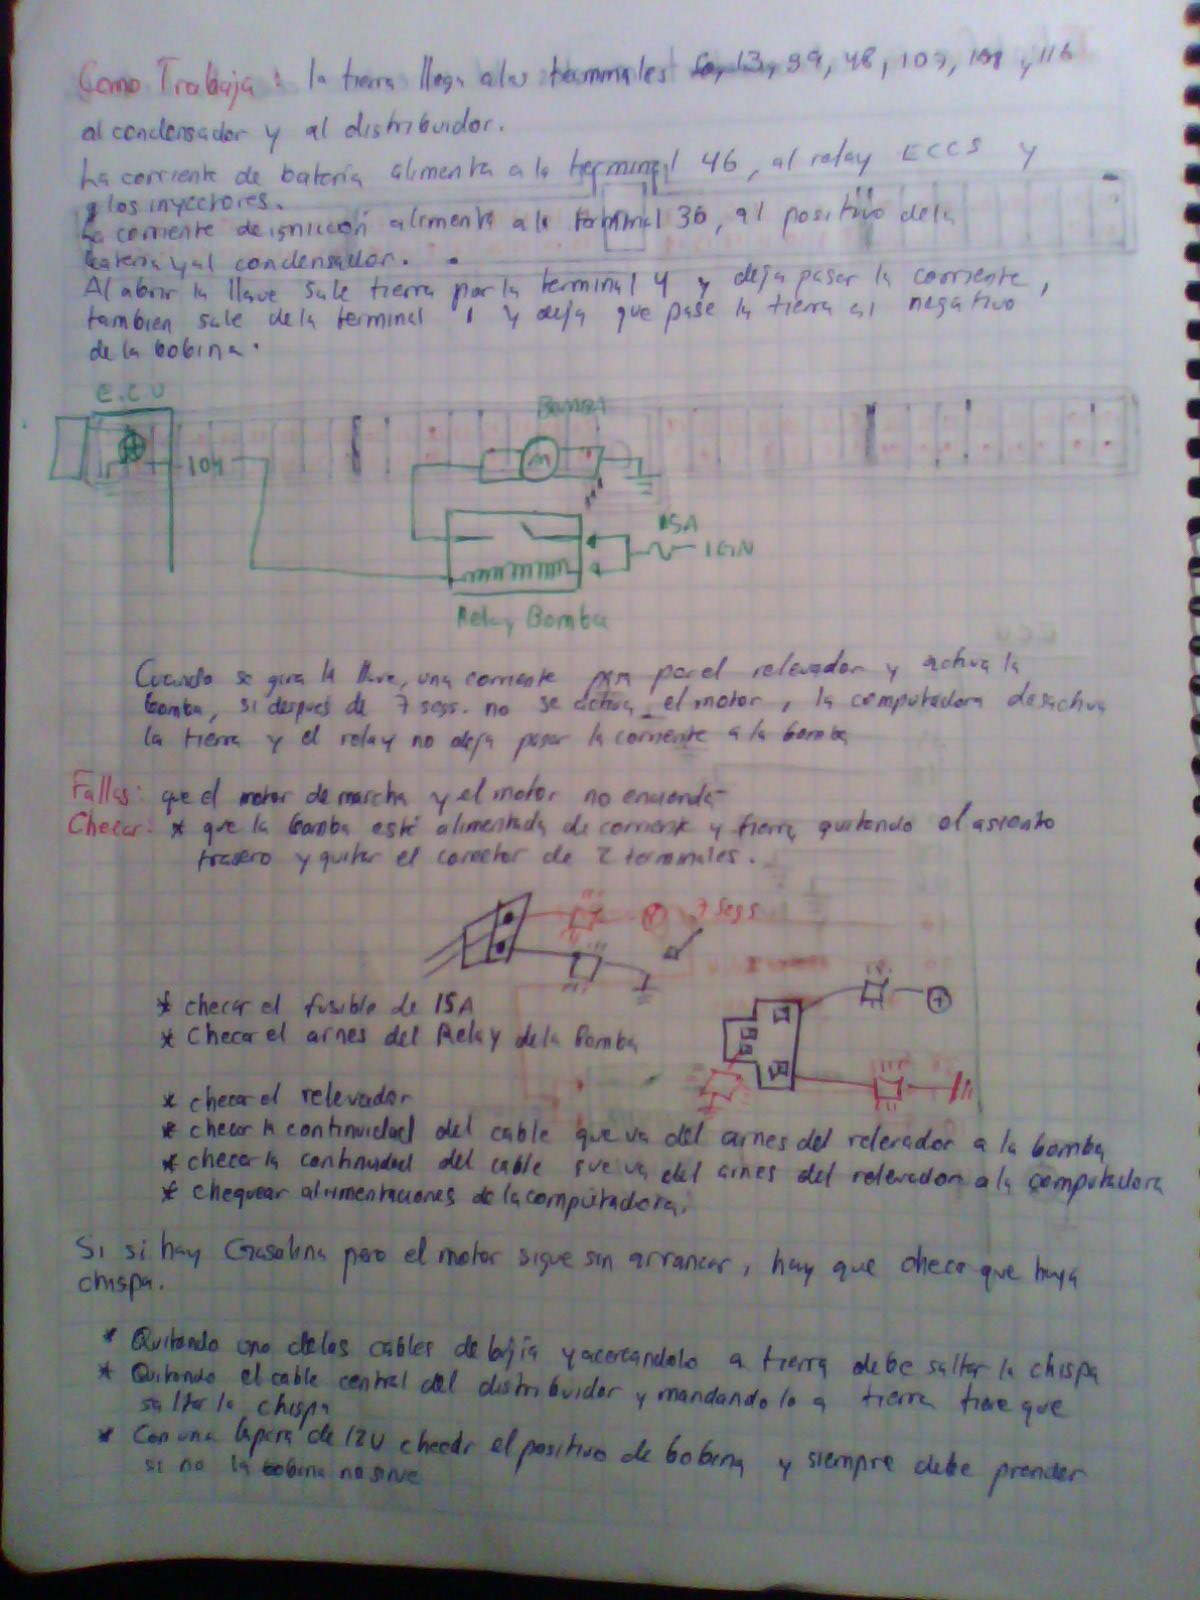 Como Trabaja: la tierra llega a las terminales 13, 39, 48, 107, 108 y 116
al condensador y al distribuidor.
La corriente de batería alimenta a la terminal 46, al relay ECCS y
a los inyectores.
La corriente de ignición alimenta a la terminal 36, al positivo de la
bateria y al condensador.
Al abrir la llave sale tierra por la terminal 4 y deja pasar la corriente,
tambien sale de la terminal 1 y deja que pase la tierra al negativo
de la bobina.
E.C.U
BOMBA
104
M
15A
IGN
Relay Bomba
Cuando se gira la llave, una corriente por el relevador y activa la
bomba, si despues de 7 segs. no se activa el motor, la computadora desactiva
la tierra y el relay no deja pasar la corriente a la bomba
Fallas: que el motor de marcha y el motor no encienda
Checar: * que la bomba esté alimentada de corriente y tierra quitando el asiento
trasero y quitar el conector de 2 terminales.
+ 7 segs
* checar el fusible de 15A
* Checar el arnes del Relay de la Bomba
+
* checar el relevador
* checar la continuidad del cable que va del arnes del relevador a la bomba
* checar la continuidad del cable que va del arnes del relevador a la computadora
* chequear alimentaciones de la computadora.
Si si hay Gasolina pero el motor sigue sin arrancar, hay que checar que haya
chispa.
* Quitando uno de los cables de bujía y acercandolo a tierra debe saltar la chispa
* Quitando el cable central del distribuidor y mandandolo a tierra tiene que
saltar la chispa
* Con una lapara de 12V checar el positivo de bobina y siempre debe prender
si no la bobina no sirve